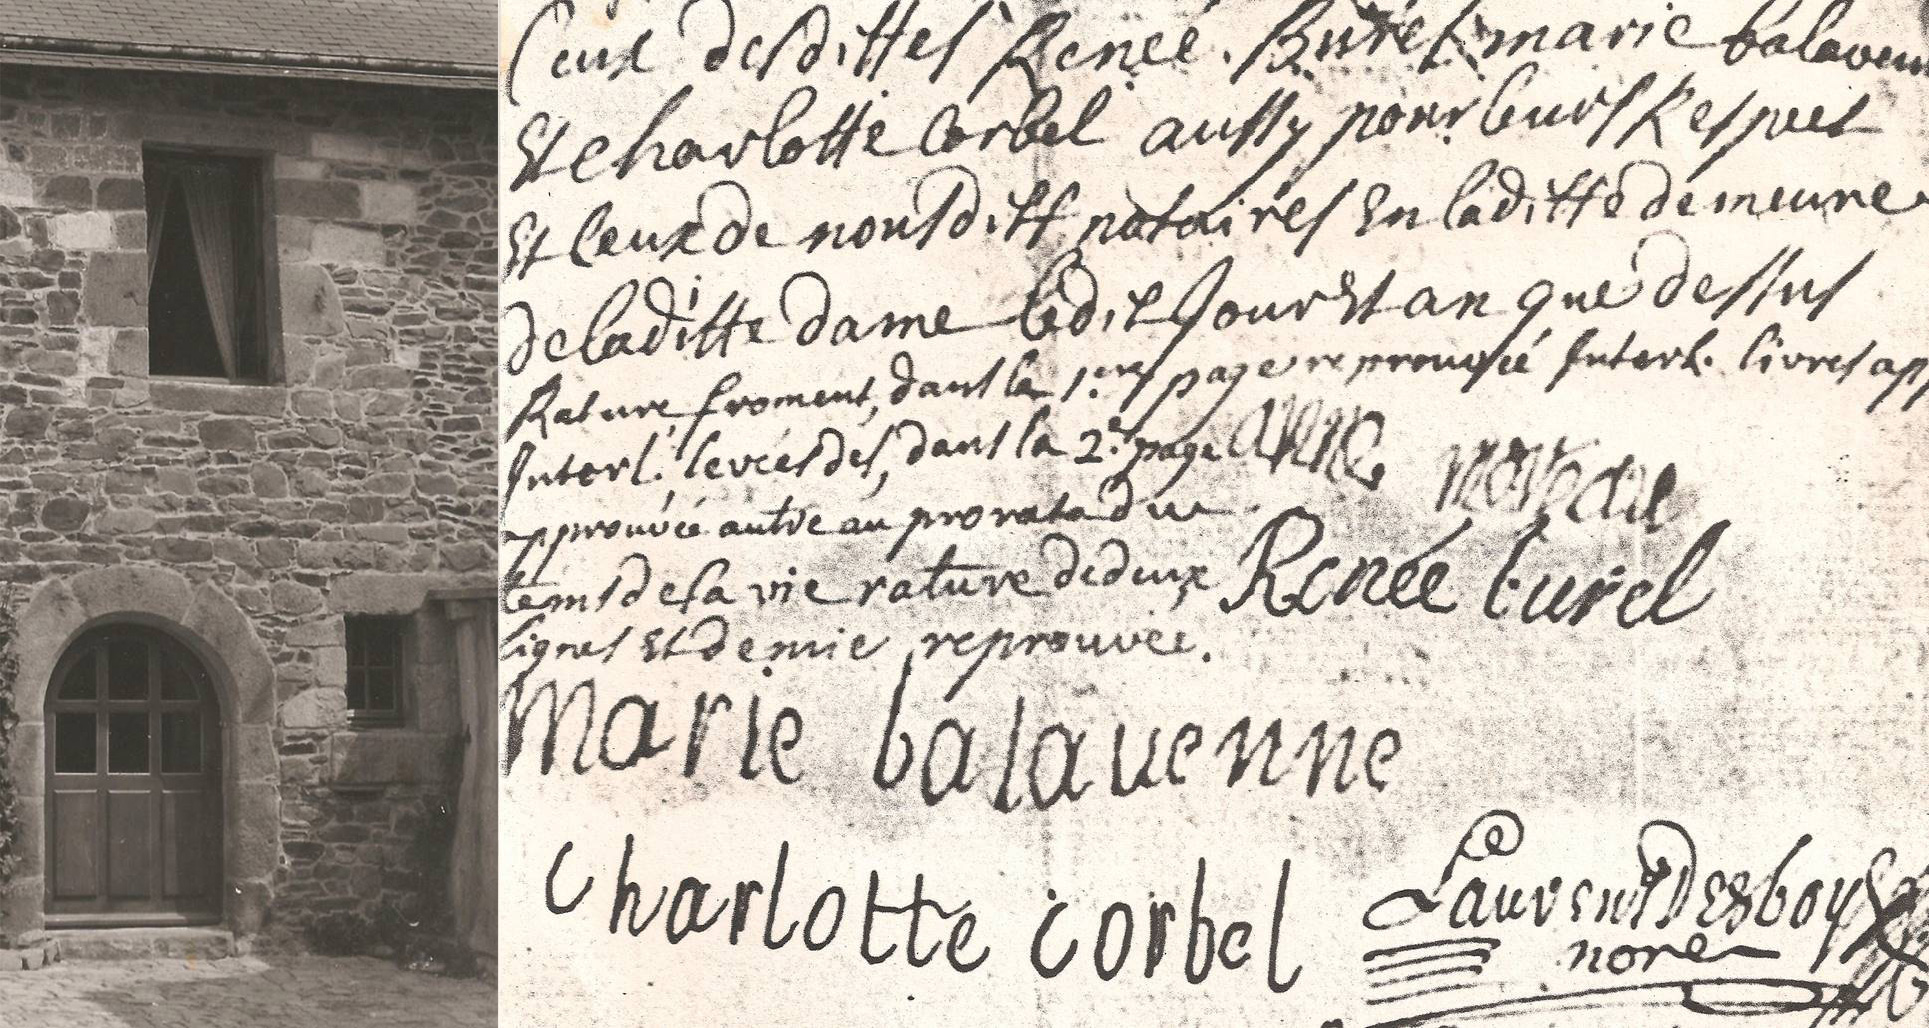 Ceux desdittes Renée Burel, marie balavenn
Et charlotte Corbel aussy pour leurs Respect
Et Ceux de nousditt notaires En laditte demeure
de laditte dame ledit Jour Et an que dessus
Rature, froment, dans la 1.ere page reprouvée Interl. livres app
Interl. levées des, dans la 2.e page
approuvée autre au prorata du
tems de sa vie rature de deux
lignes Et demie reprouvée.
anne
Renée burel
marie balavenne
charlotte corbel
Laurent Desboys
nore